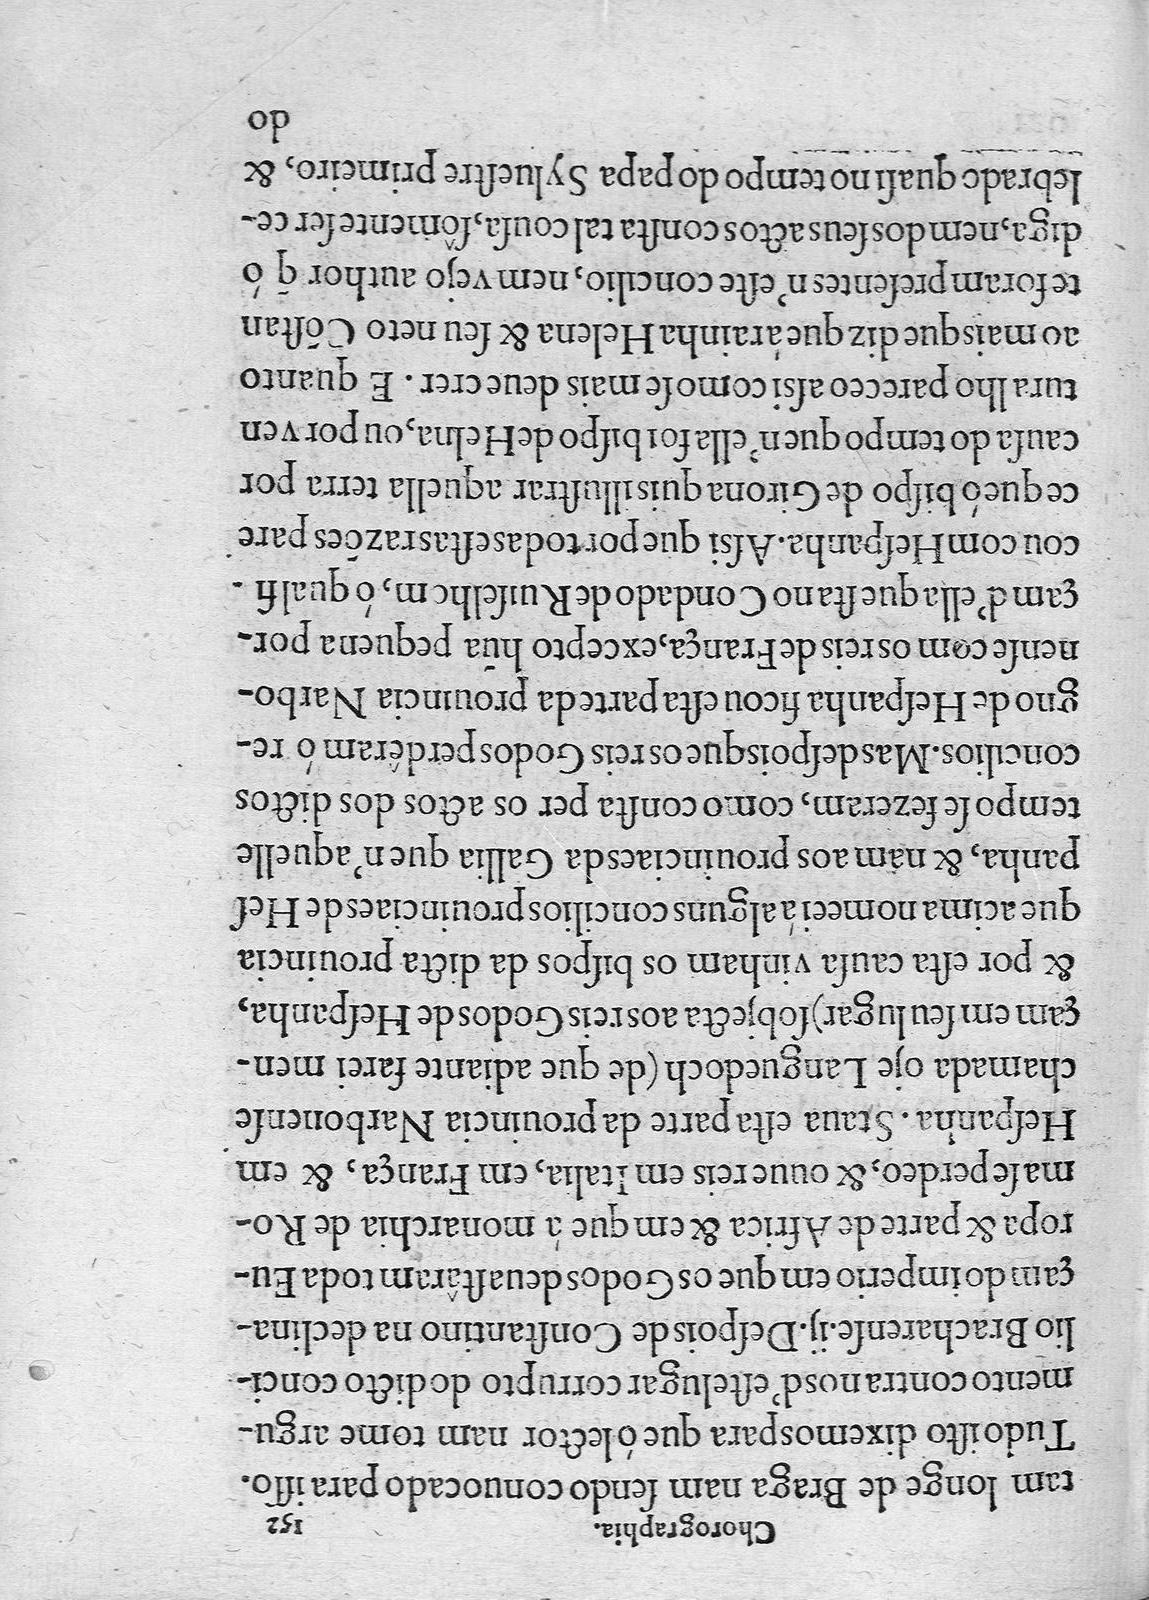 Chorographia. 152
tam longe de Braga nam ſendo conuocado para iſſo.
Tudo iſto dixemos para que ó lector nam tome argu-
mento contra nos d'eſte lugar corrupto do dicto conci-
lio Bracharenſe.ij. Deſpois de Conſtantino na declina-
çam do imperio em que os Godos deuaſtâram toda Eu-
ropa & parte de Africa & em que á monarchia de Ro-
ma ſe perdeo, & ouue reis em Italia, em França, & em
Heſpanha. Staua eſta parte da prouincia Narbonenſe
chamada oje Languedoch (de que adiante farei men-
çam em ſeu lugar) ſobjecta aos reis Godos de Heſpanha,
& por eſta cauſa vinham os biſpos da dicta prouincia
que acima nomeei á alguns concilios prouinciaes de Heſ
panha, & nam aos prouinciaes da Gallia que n'aquelle
tempo ſe fezeram, como conſta per os actos dos dictos
concilios. Mas deſpois que os reis Godos perdêram ó re-
gno de Heſpanha ficou eſta parte da prouincia Narbo-
nenſe com os reis de França, excepto hũa pequena por-
çam d'ella que ſta no Condado de Ruiſelhcm, ó qual fi-
cou com Heſpanha. Aſsi que por todas eſtas razões pare
ce que ó biſpo de Girona quis illuſtrar aquella terra por
cauſa do tempo que n'ella foi biſpo de Helna, ou por ven
tura lho pareceo aſsi como ſe mais deue crer. E quanto
ao mais que diz que á rainha Helena & ſeu neto Cõſtan
te foram preſentes n'eſte concilio, nem vejo author q̃ ó
diga, nem dos ſeus actos conſta tal couſa, ſômente ſer ce-
lebrado quaſi no tempo do papa Sylueſtre primeiro, &
do